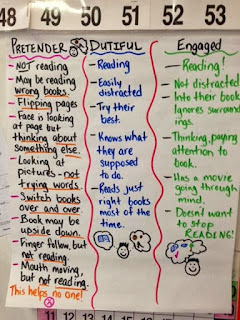 48 49 50 51 52 53
PRETENDER
- NOT reading
- May be reading
wrong books.
- Flipping pages
- Face is looking
at page but
thinking about
something else.
- Looking at
pictures - not
trying words.
- Switch books
over and over
- Book may be
upside down.
- Finger follow, but
not reading.
- Mouth moving,
but not reading.
This helps no one!
DUTIFUL
- Reading
- Easily
distracted
- Try their
best.
- Knows what
they are
supposed
to do.
- Reads just
right books
most of the
time.
Engaged
- Reading!
- Not distracted
- Into their book
Ignores surround
ings
- Thinking, paying
attention to
book.
- Has a movie
going through
mind.
- Doesn't want
to stop
READING!